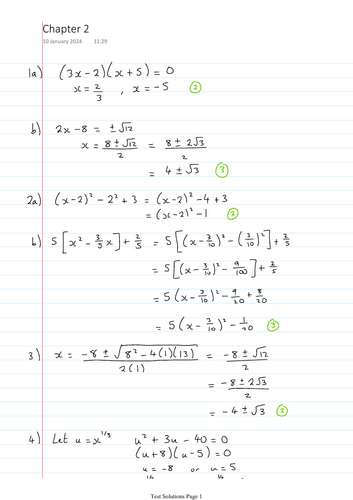 Chapter 2
10 January 2024 11:29
1a) (3x-2)(x+5) = 0
x = 2/3 , x = -5 (2)
b) 2x-8 = ±√12
x = (8 ± √12)/2 = (8 ± 2√3)/2
= 4 ± √3 (3)
2a) (x-2)² - 2² + 3 = (x-2)² - 4 + 3
= (x-2)² - 1 (2)
b) 5[x² - 3/5 x] + 2/5 = 5[(x - 3/10)² - (3/10)²] + 2/5
= 5[(x - 3/10)² - 9/100] + 2/5
= 5(x - 3/10)² - 9/20 + 8/20
= 5(x - 3/10)² - 1/20 (3)
3) x = (-8 ± √(8² - 4(1)(13)))/2(1) = (-8 ± √12)/2
= (-8 ± 2√3)/2
= -4 ± √3 (3)
4) Let u = x^1/3 u² + 3u - 40 = 0
(u+8)(u-5) = 0
u = -8 or u = 5
Test Solutions Page 1